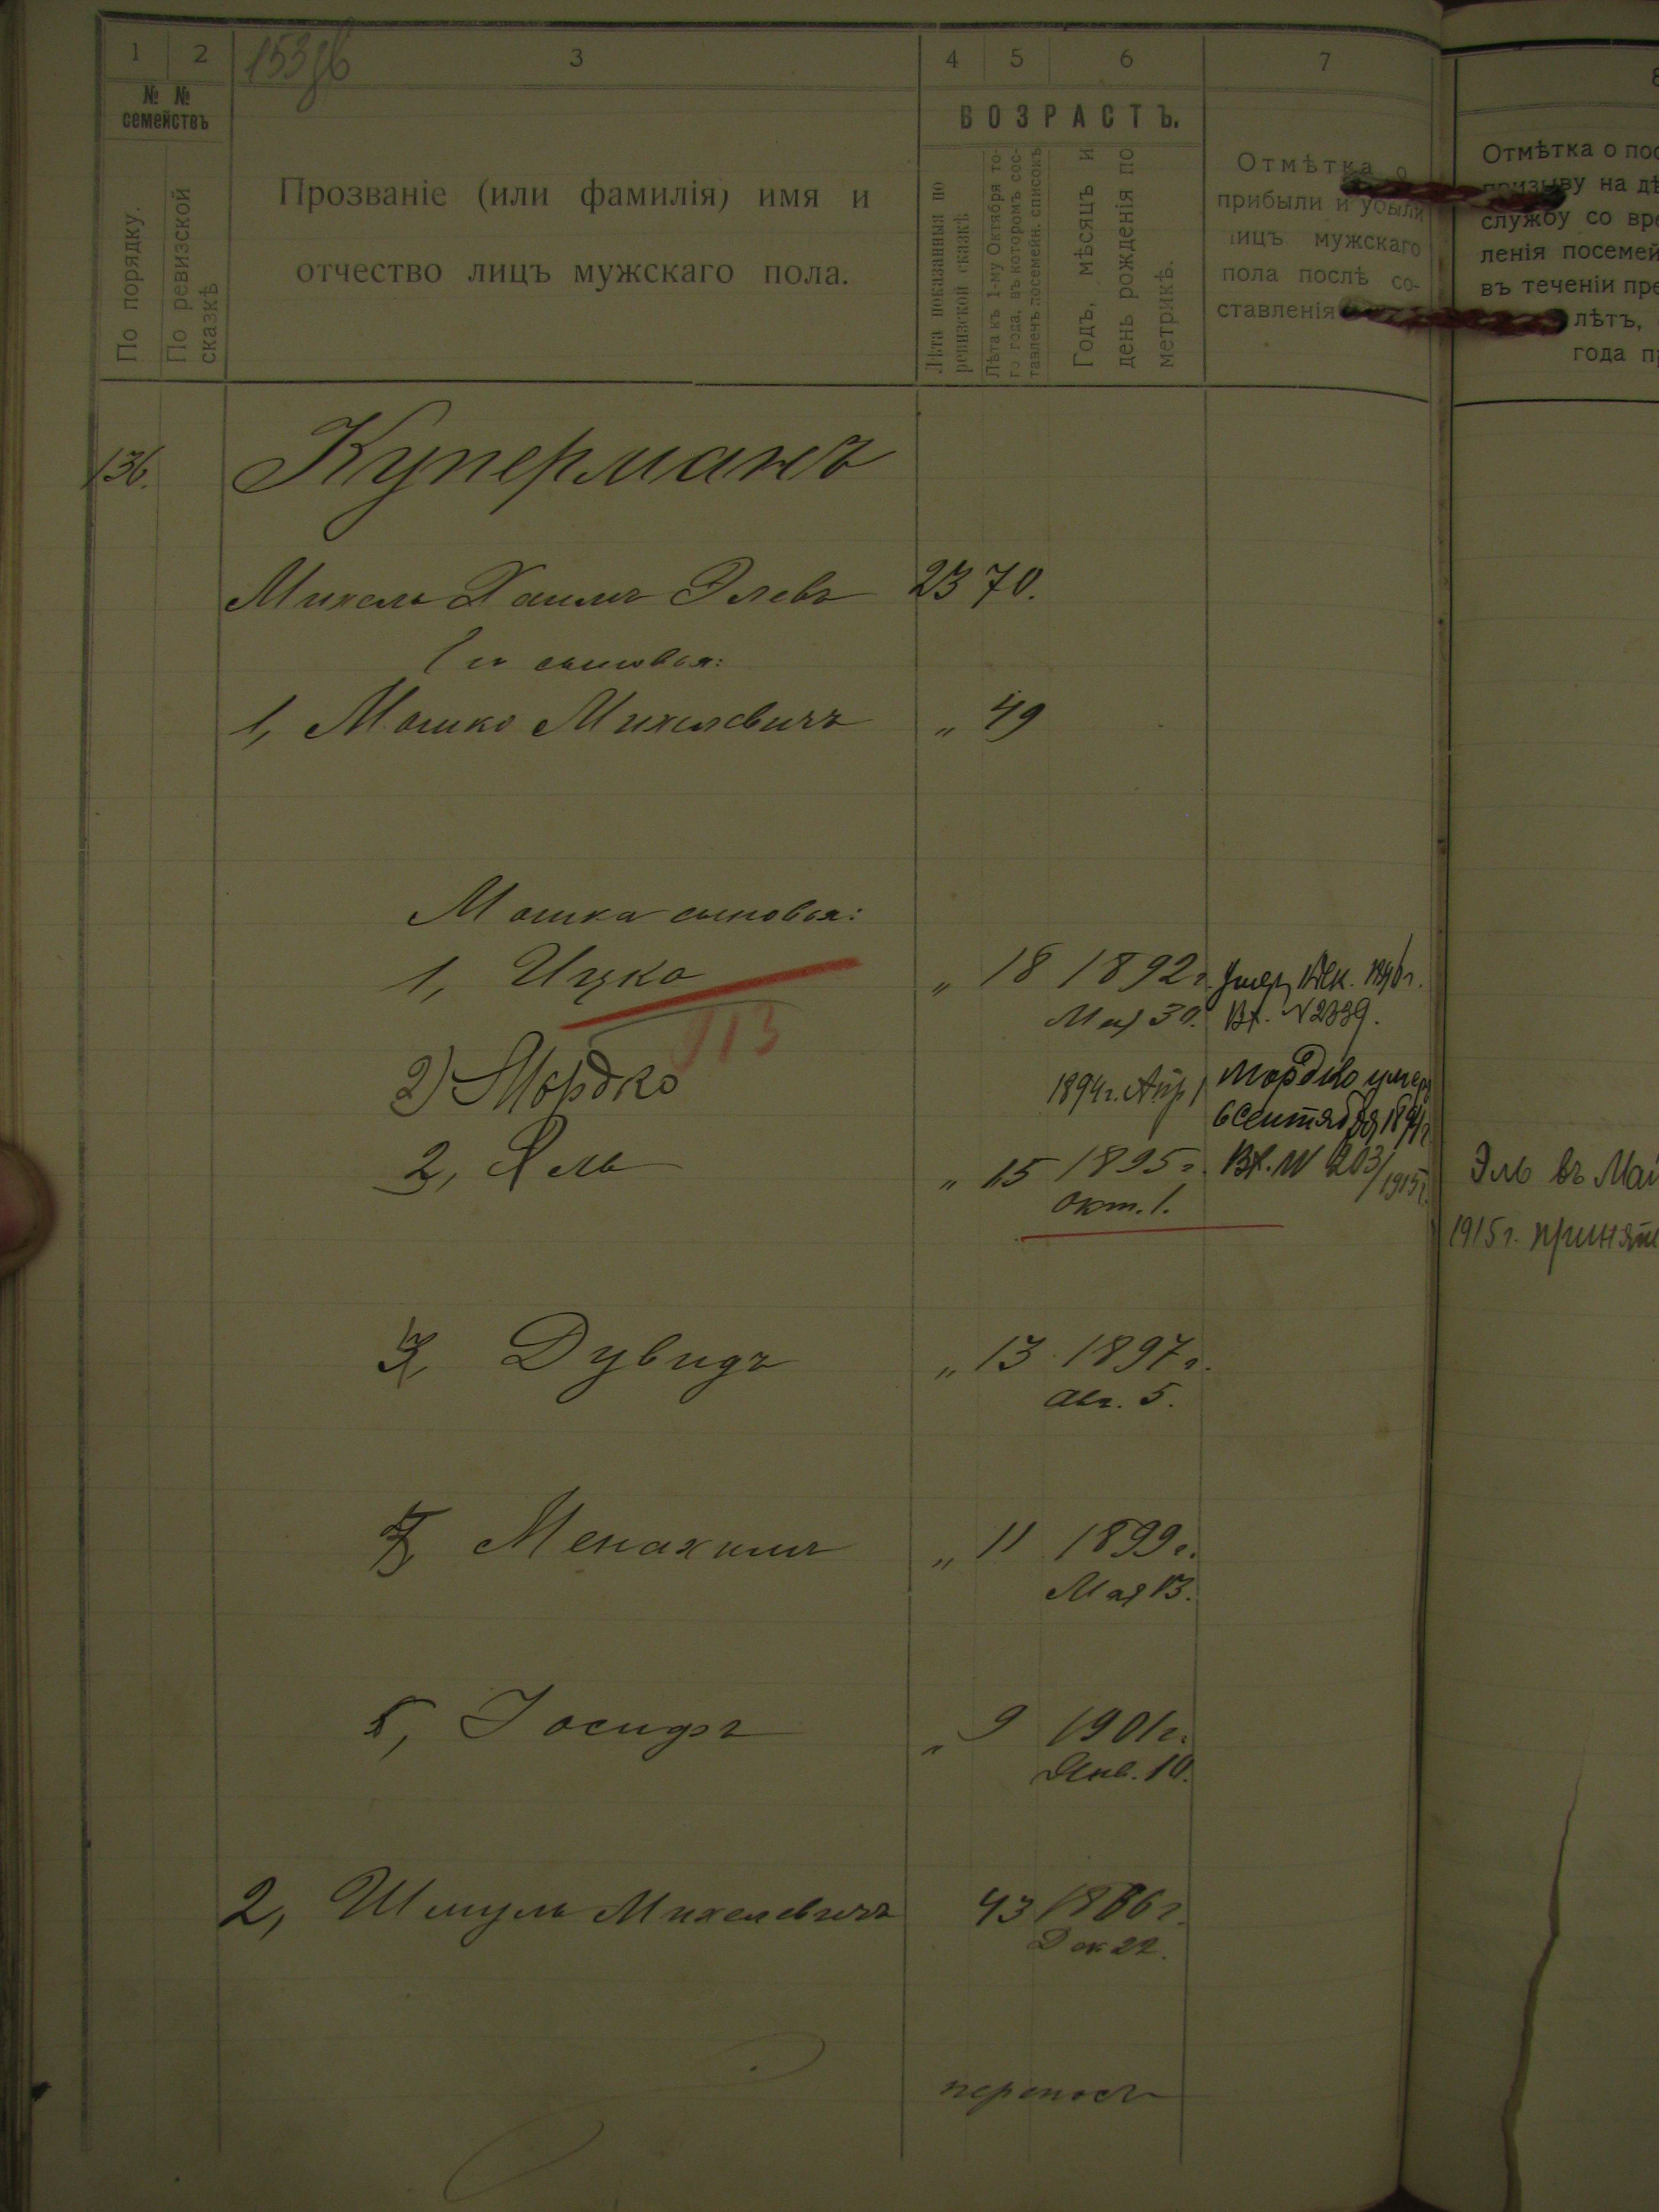 1 2 3 4 5 6 7
№ № семействъ
По порядку.
По ревизской сказкѣ
Прозваніе (или фамилія) имя и
отчество лицъ мужскаго пола.
ВОЗРАСТЪ.
Лѣта показанныя по ревизской сказкѣ
Лѣта къ 1-му Октября то-
го года, въ которомъ сос-
тавленъ посемейн. списокъ
Годъ, мѣсяцъ и
день рожденія по
метрикѣ.
Отмѣтка о
прибыли и убыли
лицъ мужскаго
пола послѣ со-
ставленія
Отмѣтка о пос
призыву на дѣ
службу со вре
ленія посемей
въ теченіи пре
лѣтъ,
года пр
136. Куперманъ
Михель Хаимъ Элевъ 23 70.
Его сыновья:
1, Мошко Михелевичъ " 49
Мошка сыновья:
1, Ицко " 18 1892 г. Умер. Дек. г.
Мая 30. Вх. N 2339.
913
2) Мордко 1894 г. Апр 1 Мордко умер
6 Сентября 1894 г.
2, Эль " 15 1895 г. Вх. N 203/1915 г.
Окт. 1.
Эль въ Мат
1915 г. принят
3, Дувидъ " 13 1897 г.
Авг. 5.
4, Менахимъ " 11 1899 г.
Мая 13.
5, Іосифъ " 9 1901 г.
Янв. 10.
2, Шмуль Михелевичъ 43 1866 г.
Дек 22.
переносъ